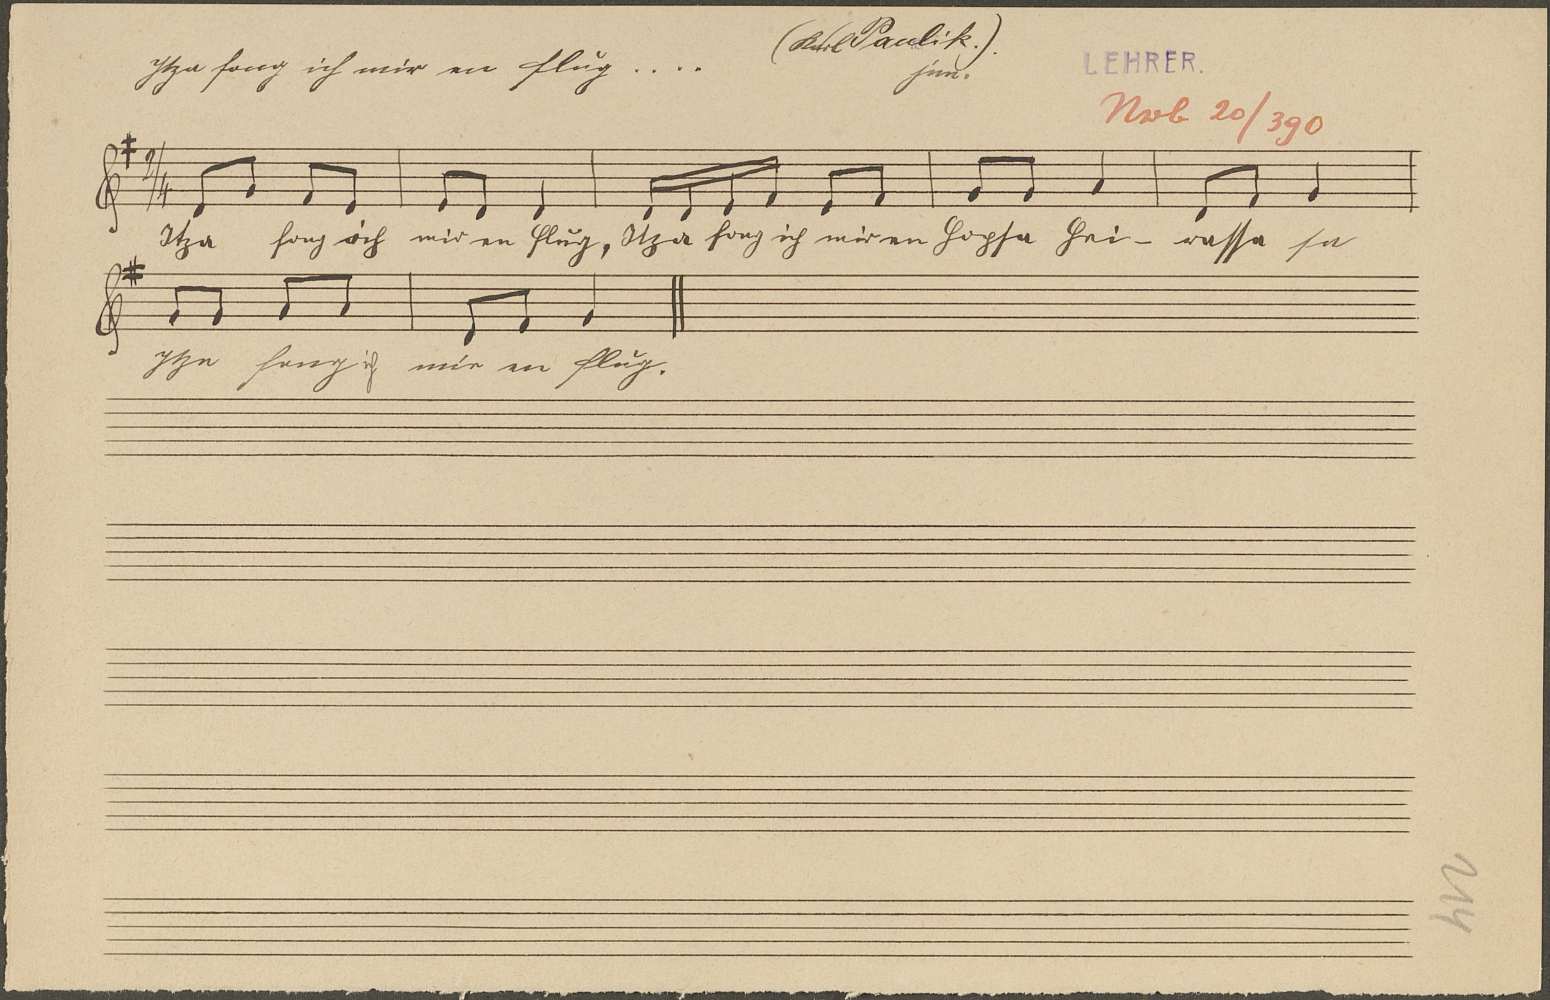 Itza fong ich mir en Flug ....
(Karl Paulik.).
jun.
LEHRER.
Nrb 20/390
2/4
Itza fong ich mir en Flug, Itza fong ich mir en Hopsa Hei- rassa sa
Itza fong ich mir en Flug.
214